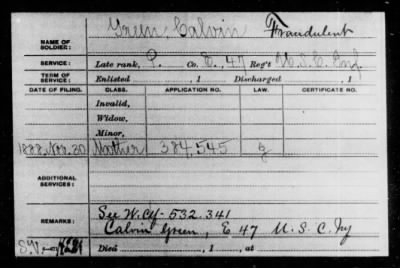 Green, Calvin Fraudulent
NAME OF SOLDIER:
SERVICE: Late rank, P. Co. E, 47 Reg't U.S.C. Inf.
TERM OF SERVICE: Enlisted , 1 Discharged , 1
DATE OF FILING. CLASS. APPLICATION NO. LAW. CERTIFICATE NO.
Invalid,
Widow,
Minor,
1888, Nov. 30 Mother 384,545 g
ADDITIONAL SERVICES:
REMARKS: See W. Cf - 532.341
Calvin Green, E 47 U.S.C. Iy
Died , 1 , at